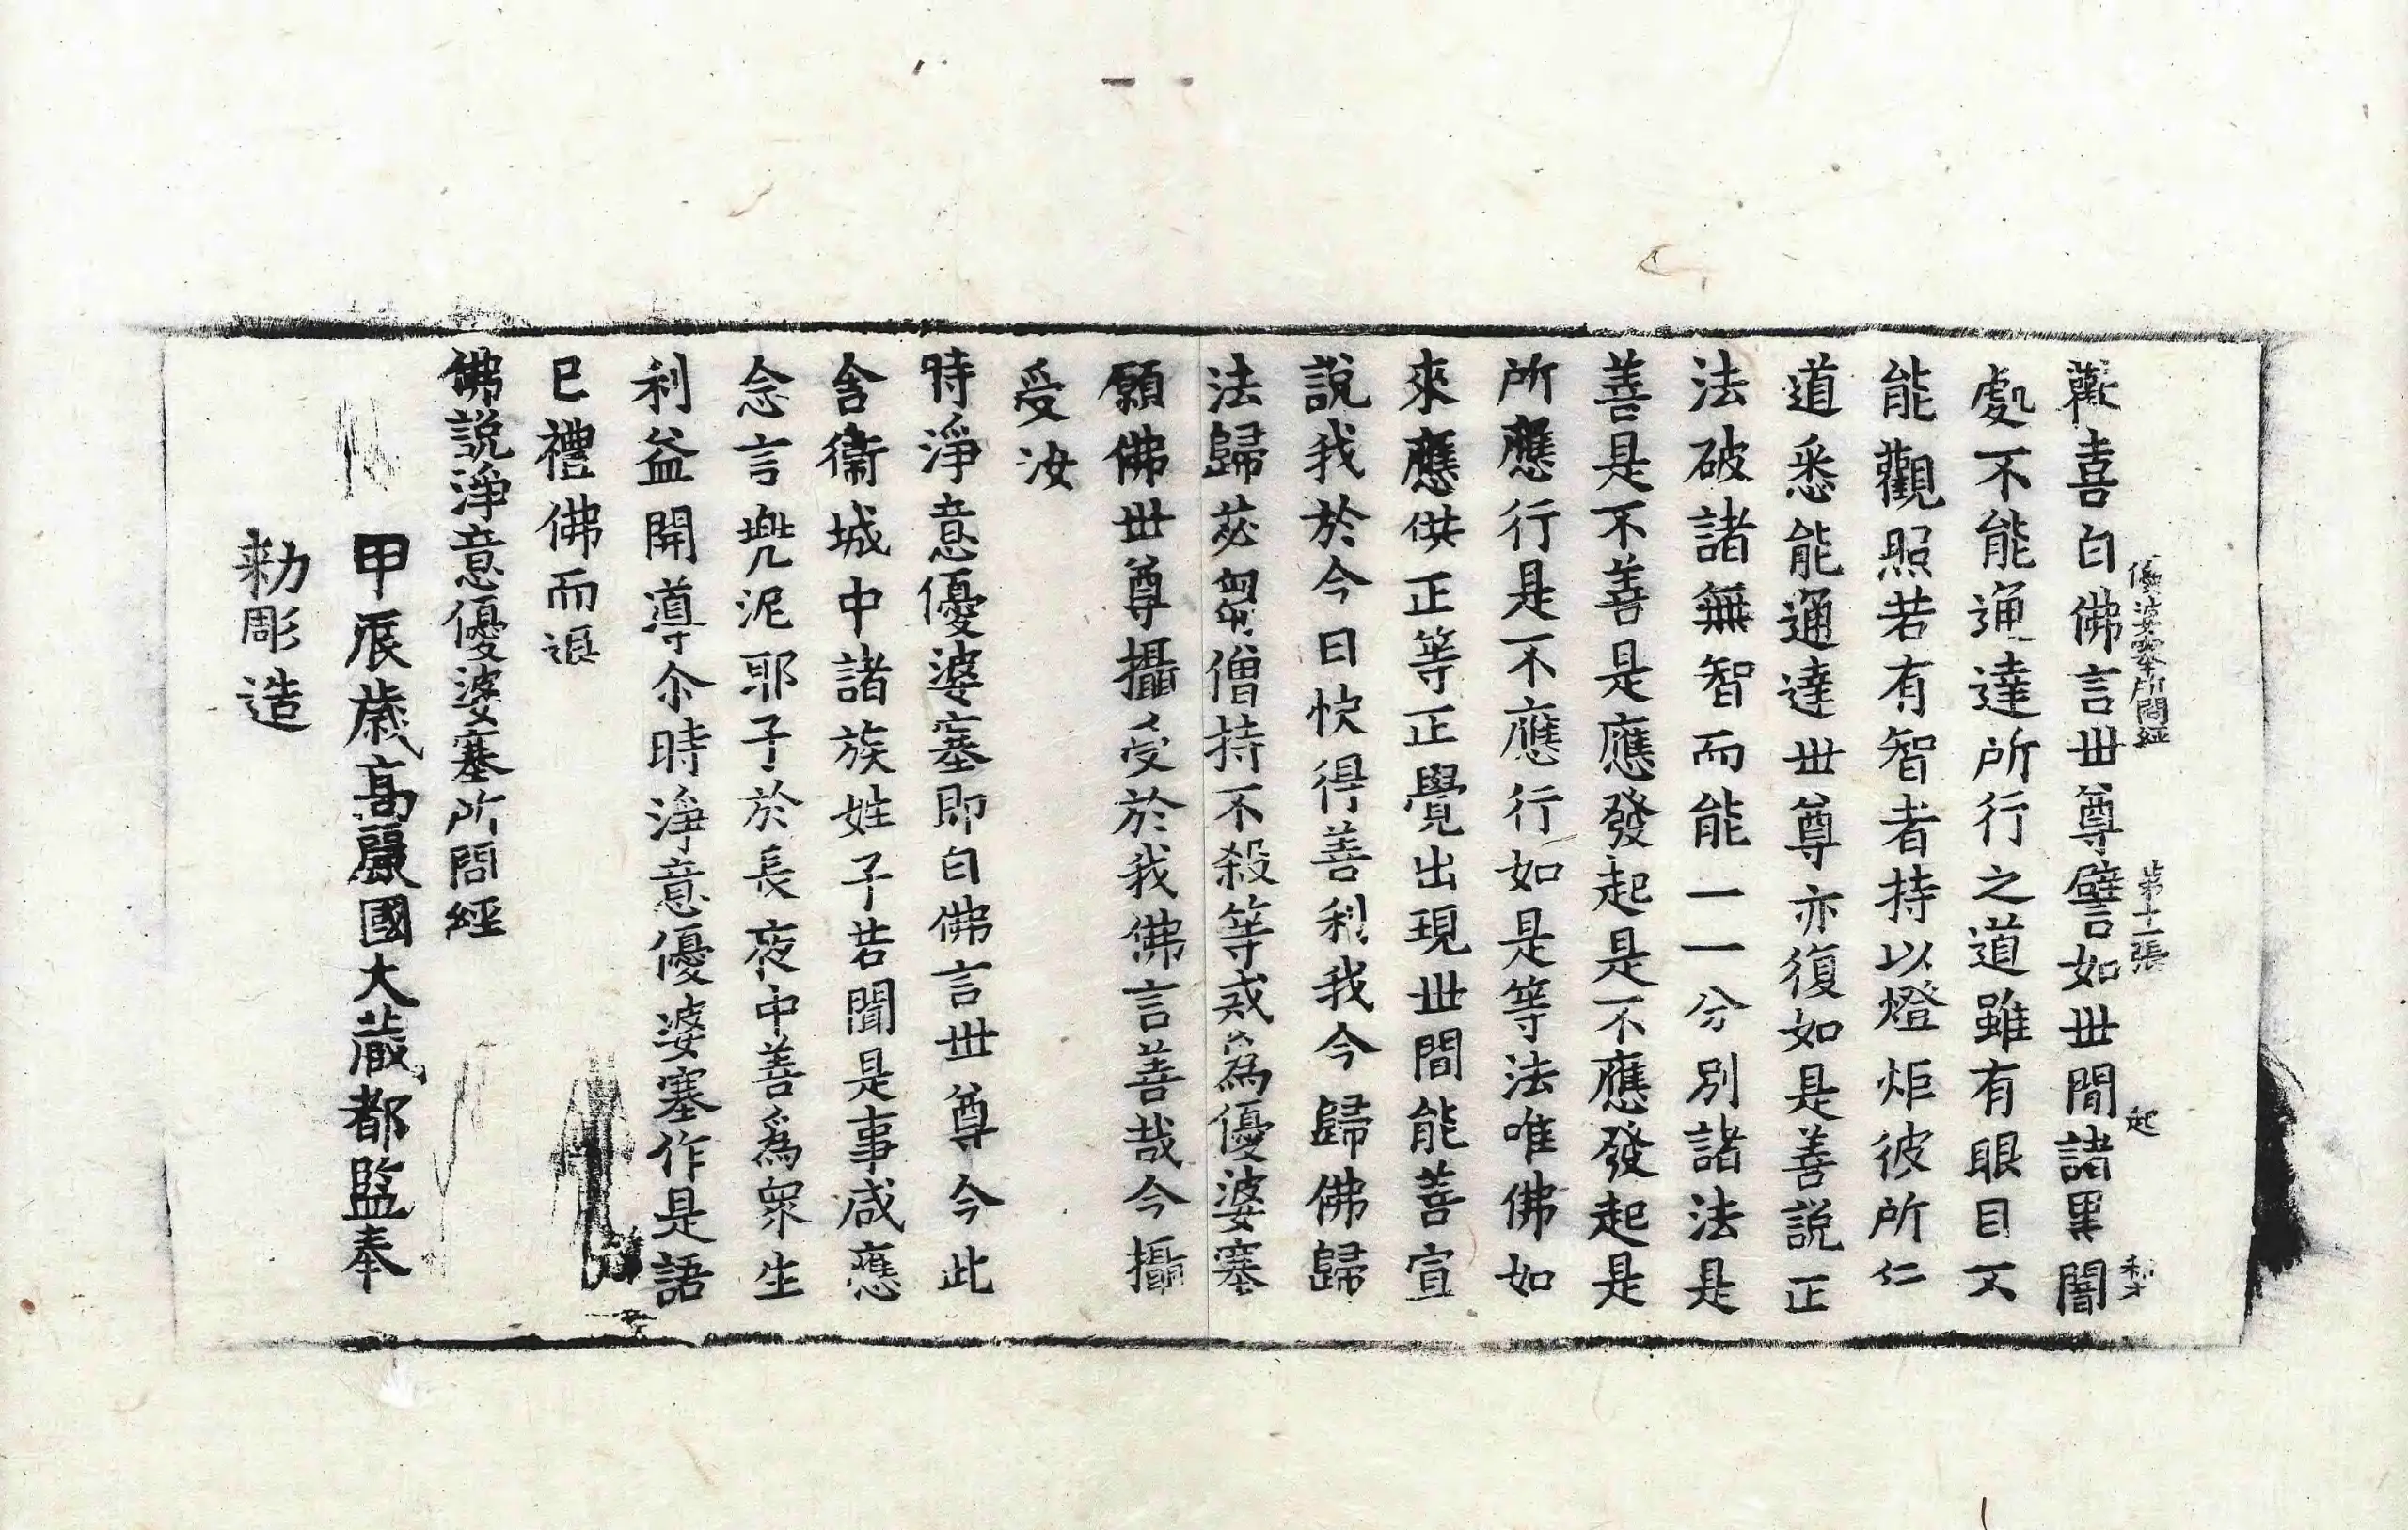 歡喜白佛言世尊譬如世間諸黑闇
優婆塞所問經 第十一張 起
處不能通達所行之道雖有眼目不
能觀照若有智者持以燈炬彼所行
道悉能通達世尊亦復如是善說正
法破諸無智而能一一分別諸法是
善是不善是應發起是不應發起是
所應行是不應行如是等法唯佛如
來應供正等正覺出現世間能善宣
說我於今日快得善利我今歸佛歸
法歸苾芻僧持不殺等戒爲優婆塞
願佛世尊攝受於我佛言善哉今攝
受汝
時淨意優婆塞即白佛言世尊今此
舍衛城中諸族姓子若聞是事咸應
念言兠泥耶子於長夜中善爲衆生
利益開導尒時淨意優婆塞作是語
已禮佛而退
佛說淨意優婆塞所問經
甲辰歲高麗國大藏都監奉
勑彫造